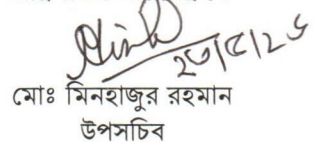 ২৩/৫/২৬
মোঃ মিনহাজুর রহমান
উপসচিব